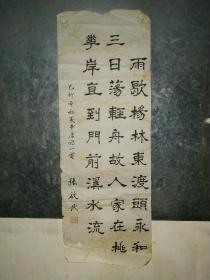 雨歇楊林東渡頭永和
三日蕩輕舟故人家在桃
華岸直到門前溪水流